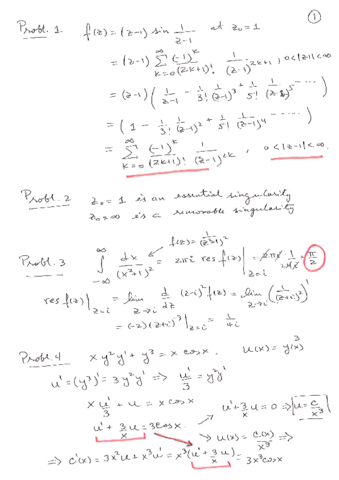 ①
Probl. 1. f(z) = (z-1) sin 1/(z-1) at z₀ = 1
= (z-1) ∑_{k=0}^{∞} (-1)^k/(2k+1)! 1/(z-1)^{2k+1}, 0<|z-1|<∞
= (z-1) ( 1/(z-1) - 1/3! 1/(z-1)^3 + 1/5! 1/(z-1)^5 - ....)
= ( 1 - 1/3! 1/(z-1)^2 + 1/5! 1/(z-1)^4 - ....)
= ∑_{k=0}^{∞} (-1)^k/(2k+1)! 1/(z-1)^{2k}, 0<|z-1|<∞.
Probl. 2 z₀ = 1 is an essential singularity
z₀ = ∞ is a removable singularity
f(z) = 1/(z²+1)²
Probl. 3 ∫_{-∞}^{∞} dx/(x²+1)² = 2πi res f(z)|_{z=i} = 2πi · 1/4i = π/2
res f(z)|_{z=i} = lim_{z→i} d/dz (z-i)² f(z) = lim_{z→i} (1/(z+i)²)'
= (-2)(z+i)^{-3}|_{z=i} = 1/4i
Probl. 4 x y² y' + y³ = x cos x. u(x) = y(x)³
u' = (y³)' = 3y² y' ⟹ u'/3 = y² y'
x u'/3 + u = x cos x
u' + 3/x u = 3 cos x → u' + 3/x u = 0 ⟹ u = c/x³
→ u(x) = c(x)/x³ ⟹
⟹ c'(x) = 3x² u + x³ u' = x³ (u' + 3/x u) = 3x³ cos x